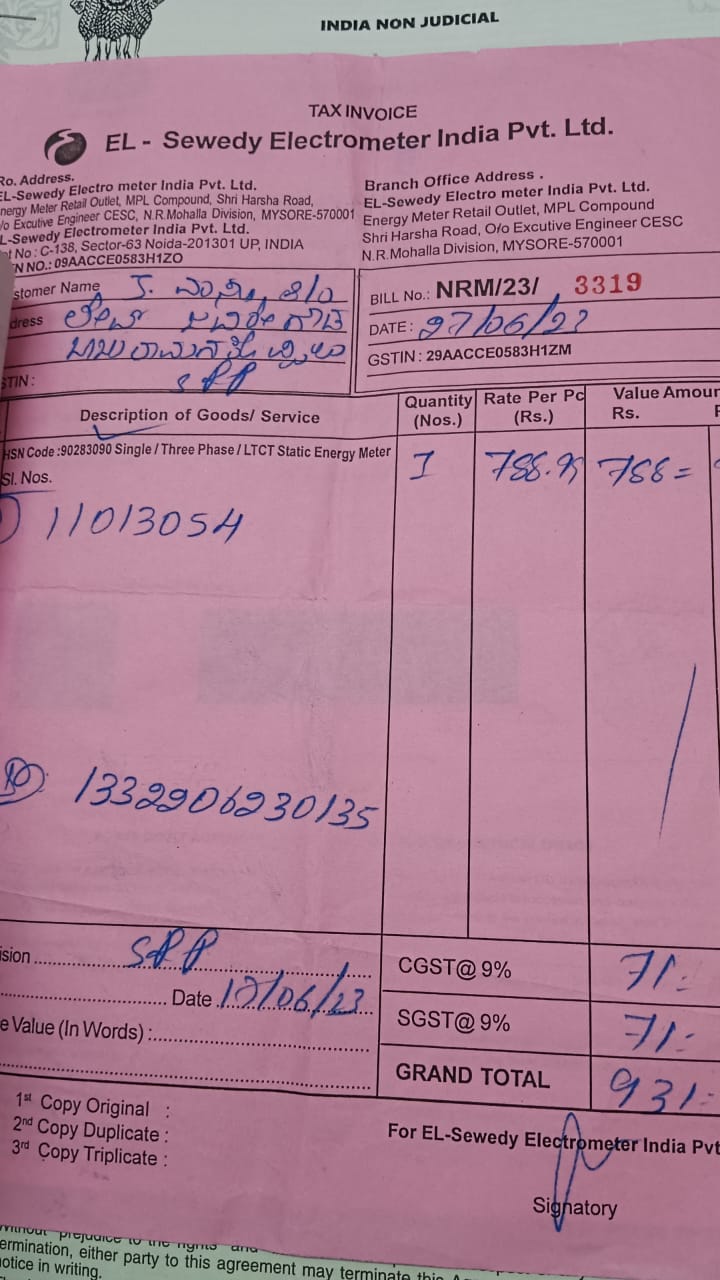 INDIA NON JUDICIAL
TAX INVOICE
EL - Sewedy Electrometer India Pvt. Ltd.
Ro. Address.
EL-Sewedy Electro meter India Pvt. Ltd.
nergy Meter Retail Outlet, MPL Compound, Shri Harsha Road,
/o Excutive Engineer CESC, N.R.Mohalla Division, MYSORE-570001
L-Sewedy Electrometer India Pvt. Ltd.
t No : C-138, Sector-63 Noida-201301 UP, INDIA
N NO.: 09AACCE0583H1ZO
Branch Office Address .
EL-Sewedy Electro meter India Pvt. Ltd.
Energy Meter Retail Outlet, MPL Compound
Shri Harsha Road, O/o Excutive Engineer CESC
N.R.Mohalla Division, MYSORE-570001
stomer Name
dress
STIN : SPP
BILL No.: NRM/23/ 3319
DATE : 27/06/23
GSTIN : 29AACCE0583H1ZM
Description of Goods/ Service Quantity (Nos.) Rate Per Pc (Rs.) Value Amour Rs.
HSN Code :90283090 Single / Three Phase / LTCT Static Energy Meter 1 788.95 788=
Sl. Nos.
11013054
1332906230135
ision SPP
Date 12/06/23
e Value (In Words) :
CGST@ 9% 71-
SGST@ 9% 71-
GRAND TOTAL 931-
1st Copy Original :
2nd Copy Duplicate :
3rd Copy Triplicate :
For EL-Sewedy Electrometer India Pvt
Signatory
ermination, either party to this agreement may terminate this
otice in writing.